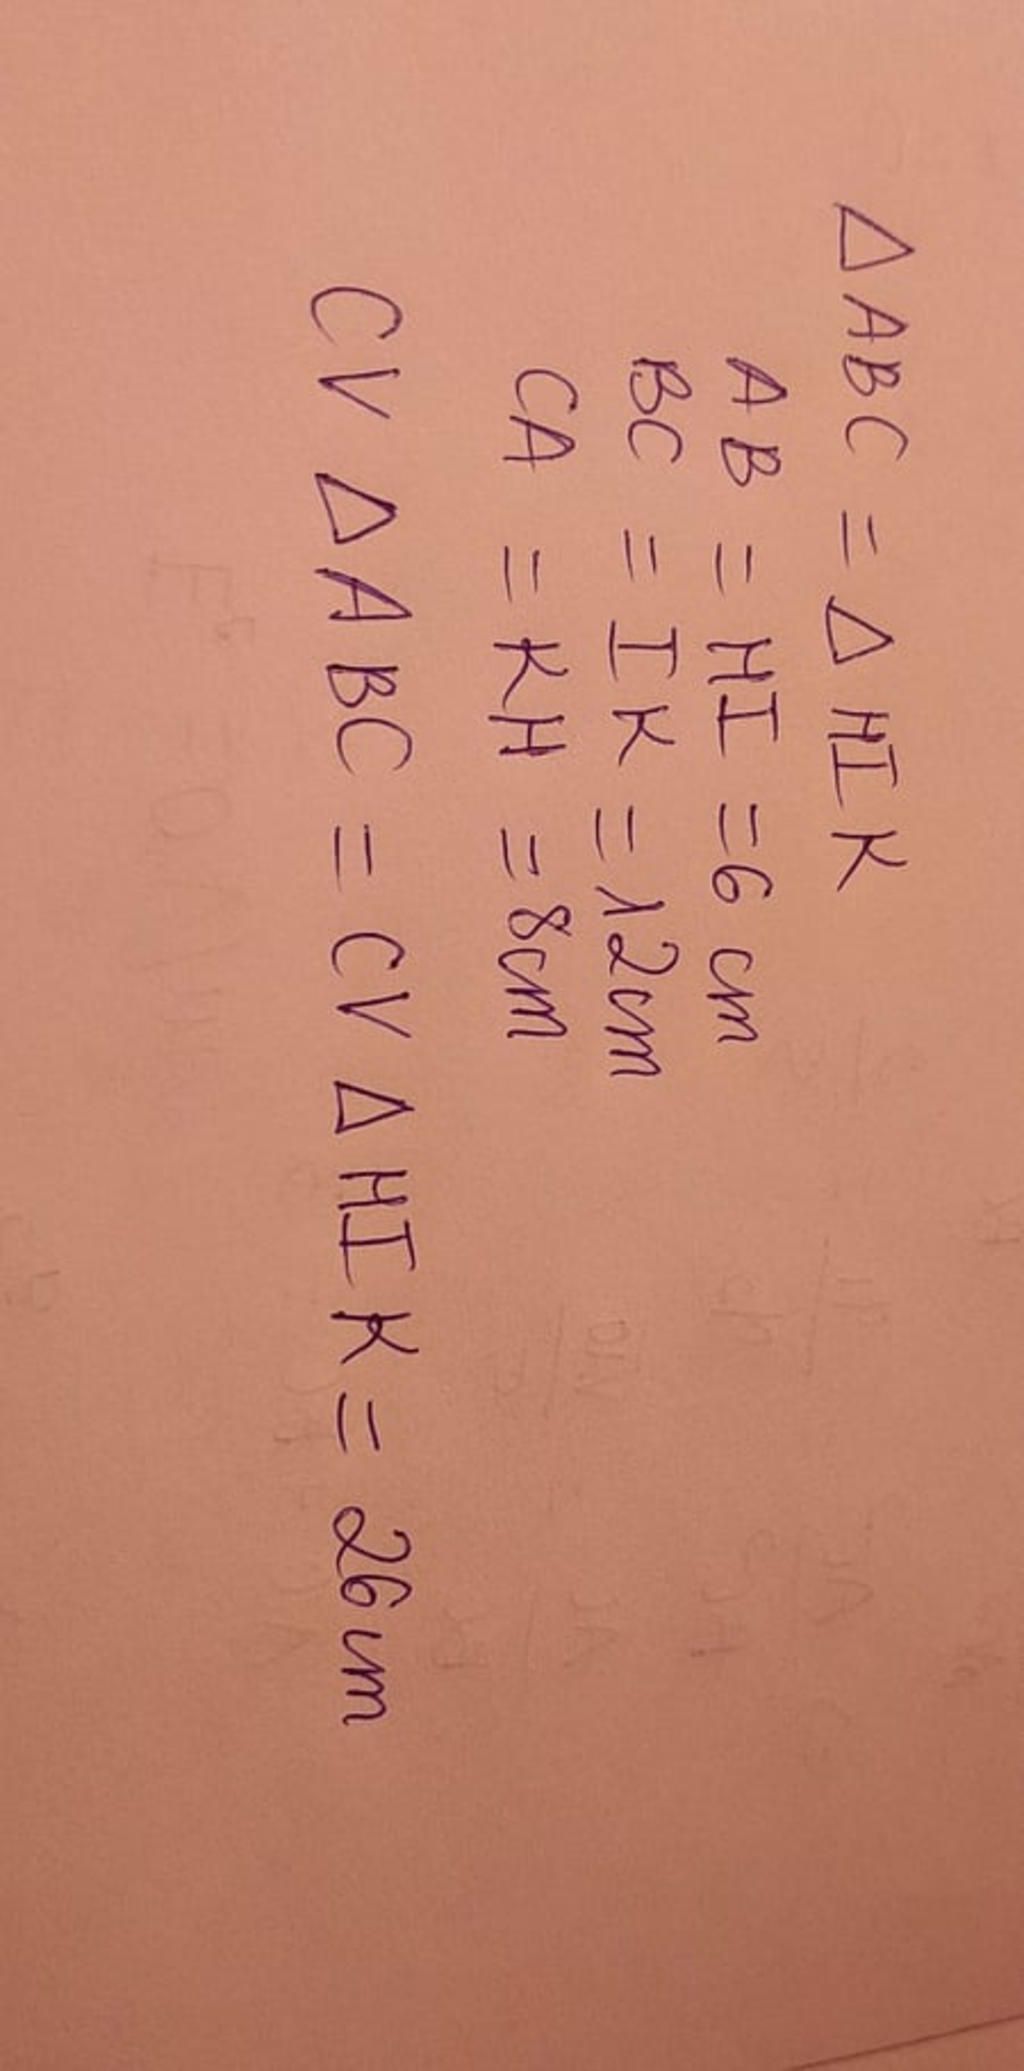 Δ ABC = Δ HIK
AB = HI = 6 cm
BC = IK = 12cm
CA = KH = 8cm
CV Δ ABC = CV Δ HIK = 26cm